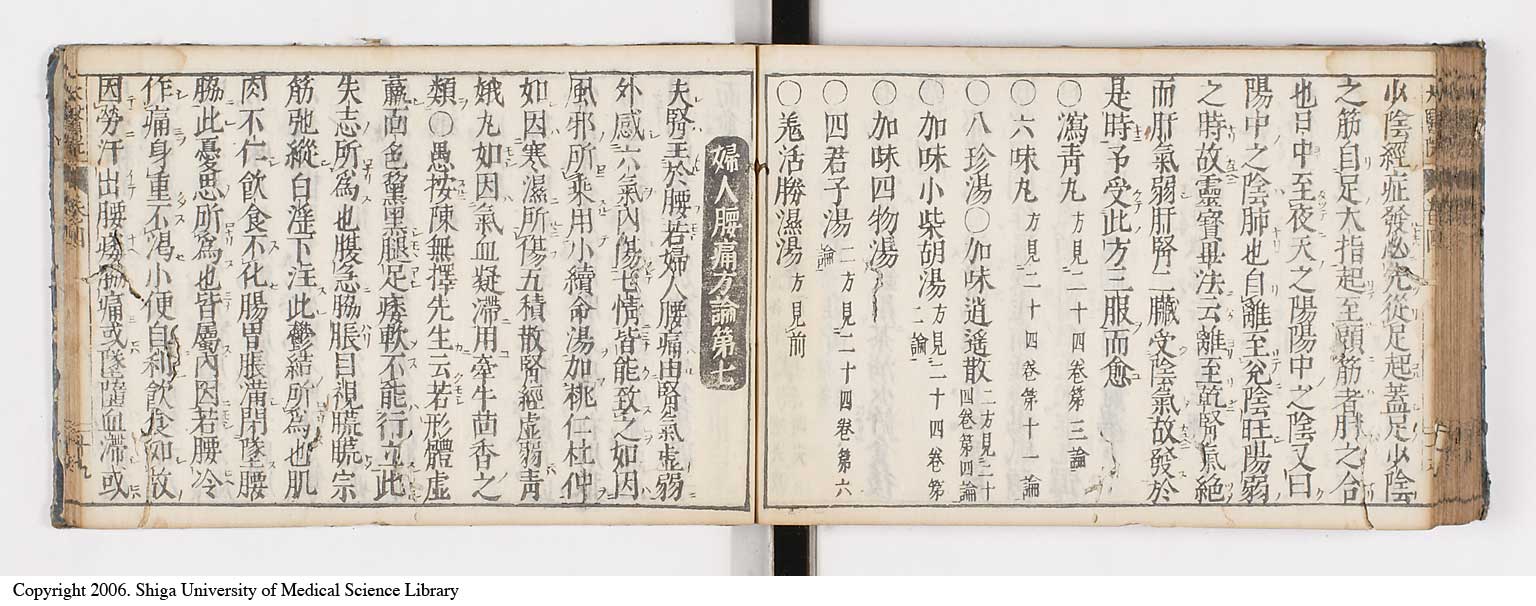 少陰經症發必先從足起蓋足少陰
之筋自足大指起至頭筋者肝之合
也日中至夜天之陽陽中之陰又曰
陽中之陰肺也自離至兌陰旺陽弱
之時故靈寳畢法云離至乾腎氣絶
而肝氣弱肝腎二臟受陰氣故發於
是時予受此方三服而愈
〇瀉青丸方見二十四卷第三論
〇六味丸方見二十四卷第十一論
〇八珍湯〇加味逍遙散二方見二十四卷第四論
〇加味小柴胡湯方見二十四卷第二論
〇加味四物湯
〇四君子湯二方見二十四卷第六論
〇羗活勝濕湯方見前
婦人腰痛方論第七
夫腎主於腰若婦人腰痛由腎氣虚弱
外感六氣內傷七情皆能致之如因
風邪所乘用小續命湯加桃仁杜仲
如因寒濕所傷五積散腎經虚弱青
娥丸如因氣血凝滯用牽牛茴香之
類〇愚按陳無擇先生云若形體虚
羸面色黧黑腿足痿軟不能行立此
失志所爲也腹急脇脹目視䀮䀮宗
筋弛縱白淫下注此鬱結所爲也肌
肉不仁飲食不化腸胃脹滿閉墜腰
脇此憂思所爲也皆屬內因若腰冷
作痛身重不渴小便自利飲食如故
因勞汗出腰痿脇痛或墜墮血滯或
Copyright 2006. Shiga University of Medical Science Library